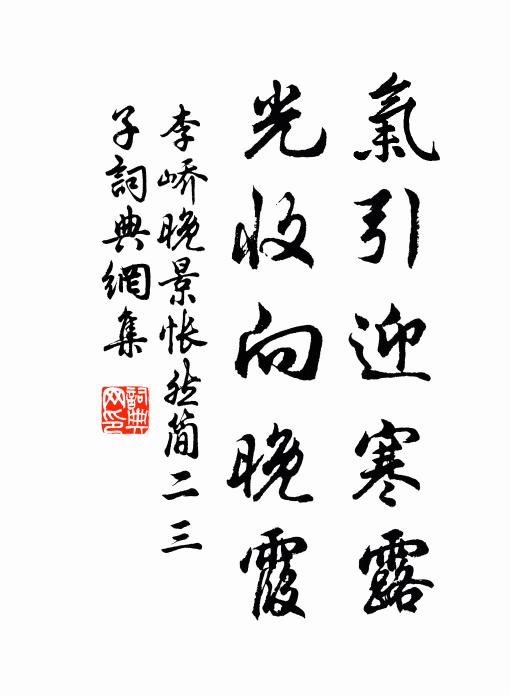 氣引迎寒露
光收向晚霞
李嶠晚景悵然簡二三
子詞典網集
詞典
网印